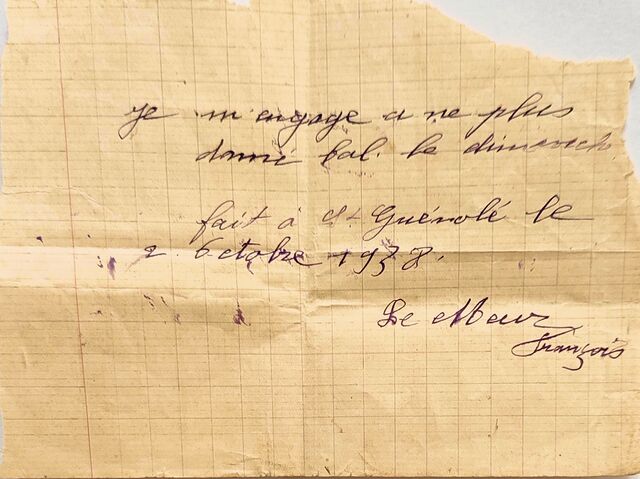 je m'engage a ne plus
donné bal. le dimanch
fait à St Guénolé le
2 Octobre 1938.
Le Meur
François